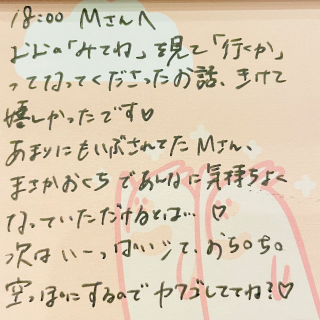 18:00 Mさんへ
ドドの「みてね」を見て「行くか」
ってなってくださったお話、きけて
嬉しかったです♡
あまりにもいぶされてたMさん、
まさかおくちであんなに気持ちよく
なっていただけるとは… ♡
次はいーっぱいシて、おち○ち○
空っぽにするのでカクゴしててね?♡